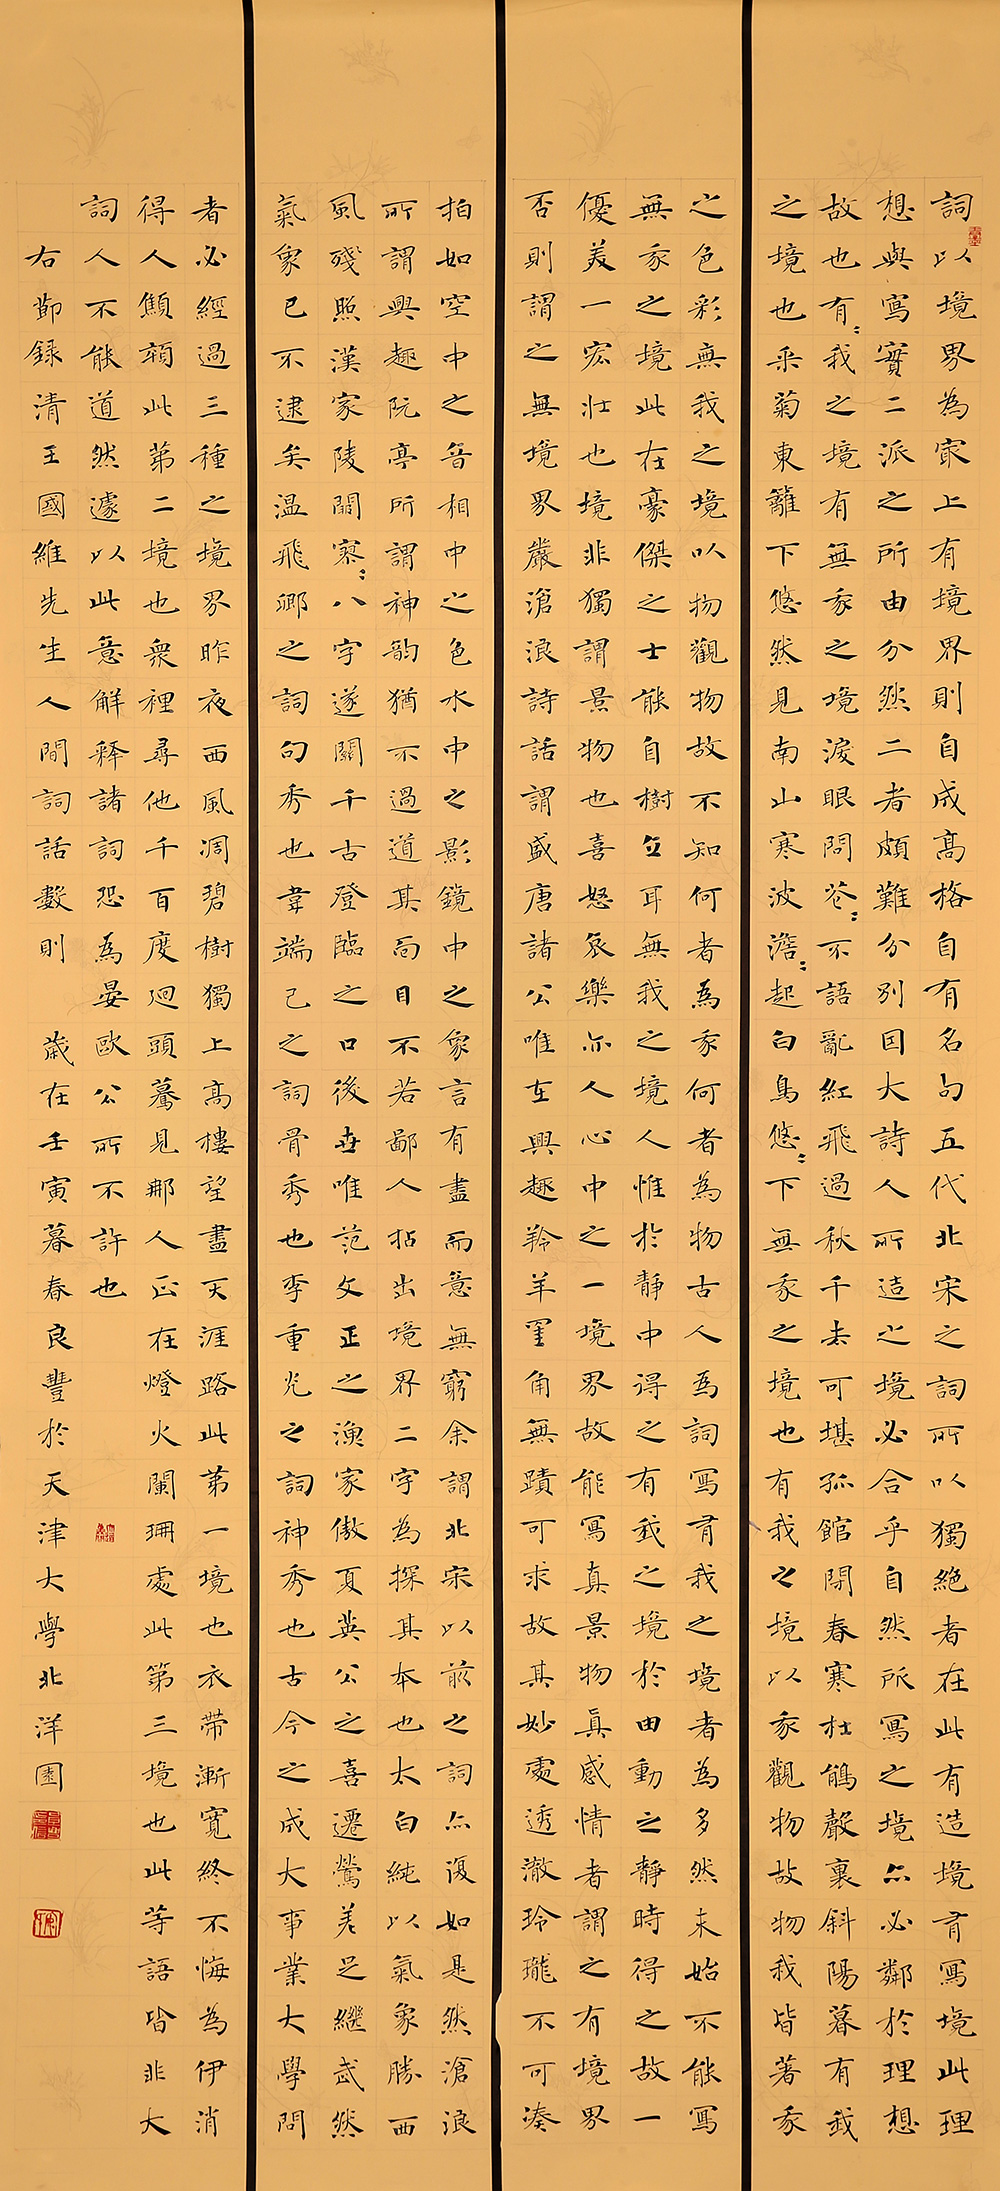 詞以境界為㝡上有境界則自成高格自有名句五代北宋之詞所以獨絕者在此有造境有寫境此理
想與寫實二派之所由分然二者頗難分別因大詩人所造之境必合乎自然所寫之境亦必鄰於理想
故也有〻我之境有無我之境淚眼問花〻不語亂紅飛過秋千去可堪孤館閉春寒杜鵑聲裏斜陽暮有我
之境也采菊東籬下悠然見南山寒波澹〻起白鳥悠〻下無我之境也有我之境以我觀物故物我皆著我
之色彩無我之境以物觀物故不知何者為我何者為物古人為詞寫有我之境者為多然未始不能寫
無我之境此在豪傑之士能自樹立耳無我之境人惟於靜中得之有我之境於由動之靜時得之故一
優美一宏壯也境非獨謂景物也喜怒哀樂亦人心中之一境界故能寫真景物真感情者謂之有境界
否則謂之無境界嚴滄浪詩話謂盛唐諸公唯在興趣羚羊罣角無蹟可求故其妙處透澈玲瓏不可湊
拍如空中之音相中之色水中之影鏡中之象言有盡而意無窮余謂北宋以前之詞亦復如是然滄浪
所謂興趣阮亭所謂神韵猶不過道其面目不若鄙人拈出境界二字為探其本也太白純以氣象勝西
風殘照漢家陵闕寥〻八字遂關千古登臨之口後世唯范文正之漁家傲夏英公之喜遷鶯差足繼武然
氣象已不逮矣温飛卿之詞句秀也韋端己之詞骨秀也李重光之詞神秀也古今之成大事業大學問
者必經過三種之境界昨夜西風凋碧樹獨上高樓望盡天涯路此第一境也衣帶漸寬終不悔為伊消
得人顦顇此第二境也衆裡尋他千百度迴頭驀見那人正在燈火闌珊處此第三境也此等語皆非大
詞人不能道然遽以此意解釋諸詞恐為晏歐公所不許也
右節録清王國維先生人間詞話數則　歲在壬寅暮春良豐於天津大學北洋園